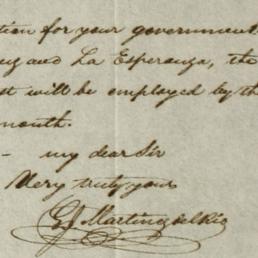 tion for your government.
uz and La Esperanza, the
st will be employed by th
month.
— my dear Sir
Very truly yours
E J Martinez del Rio